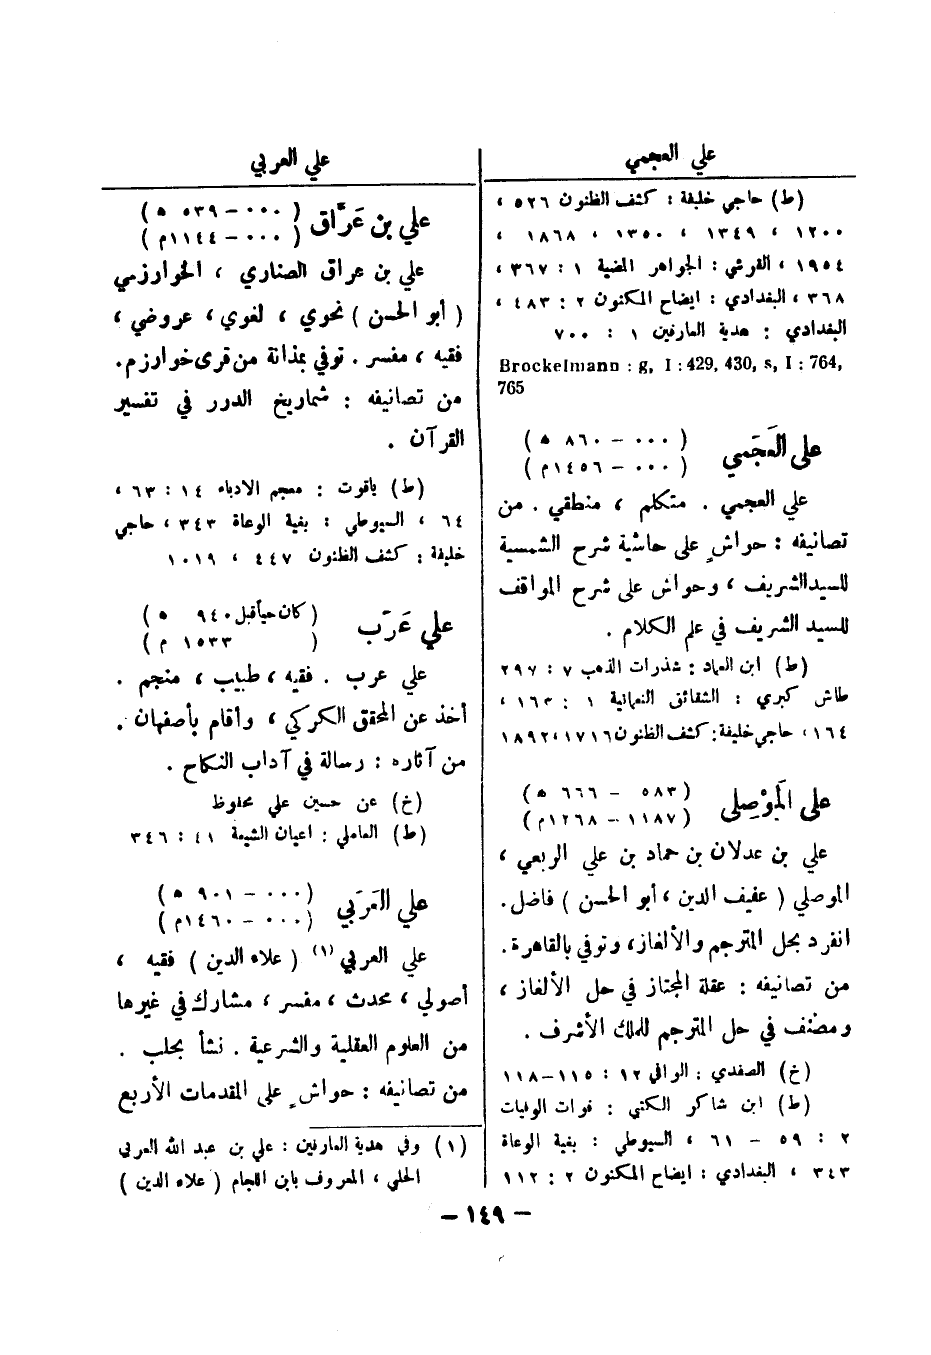 علي العجمي
(ط) حاجي خليفة : كشف الظنون ٥٢٦ ،
١٢٠٠ ، ١٣٤٩ ، ١٣٥٠ ، ١٨٦٨ ،
١٩٥٤ ، القرشي : الجواهر المضية ١ : ٣٦٧ ،
٣٦٨ ، البغدادي : ايضاح المكنون ٢ : ٤٨٣ ،
البغدادي : هدية العارفين ١ : ٧٠٠
Brockelmann : g, I : 429, 430, s, I : 764,
765
علي العَجَمي (٠٠٠ – ٨٦٠ ه)
(٠٠٠ – ١٤٥٦م)
علي العجمي . متكلم ، منطقي . من
تصانيفه : حواشٍ على حاشية شرح الشمسية
للسيد الشريف ، وحواش على شرح المواقف
للسيد الشريف في علم الكلام .
(ط) ابن العماد : شذرات الذهب ٧ : ٢٩٧
طاش كبري : الشقائق النعمانية ١ : ١٦٣ ،
١٦٤ ، حاجي خليفة : كشف الظنون ١٧١٦ ، ١٨٩٢
علي المَوْصِلي (٥٨٣ – ٦٦٦ ه)
(١١٨٧ – ١٢٦٨م)
علي بن عدلان بن حماد بن علي الربعي ،
الموصلي ( عفيف الدين ، أبو الحسن ) فاضل .
انفرد بحل المترجم والألغاز ، وتوفي بالقاهرة .
من تصانيفه : عقلة المجتاز في حل الألغاز ،
ومصنف في حل المترجم للملك الأشرف .
(خ) الصفدي : الوافي ١٢ : ١١٥ – ١١٨
(ط) ابن شاكر الكتبي : فوات الوفيات
٢ : ٥٩ – ٦١ ، السيوطي : بغية الوعاة
٣٤٣ ، البغدادي : ايضاح المكنون ٢ : ١١٢
علي العربي
علي بن عَرَّاق (٠٠٠ – ٥٣٩ ه)
(٠٠٠ – ١١٤٤م)
علي بن عراق الصناري ، الخوارزمي
( أبو الحسن ) نحوي ، لغوي ، عروضي ،
فقيه ، مفسر . توفي بمذانة من قرى خوارزم .
من تصانيفه : شماريخ الدرر في تفسير
القرآن .
(ط) ياقوت : معجم الادباء ١٤ : ٦٣ ،
٦٤ ، السيوطي : بغية الوعاة ٣٤٣ ، حاجي
خليفة : كشف الظنون ٤٤٧ ، ١٠١٩
علي عَرَب (كان حياً قبل ٩٤٠ ه)
( ١٥٣٣ م )
علي عرب . فقيه ، طبيب ، منجم .
أخذ عن المحقق الكركي ، وأقام بأصفهان .
من آثاره : رسالة في آداب النكاح .
(خ) عن حسين علي محفوظ
(ط) العاملي : اعيان الشيعة ٤١ : ٣٤٦
علي العَرَبي (٠٠٠ – ٩٠١ ه)
(٠٠٠ – ١٤٦٠م)
علي العربي (١) ( علاء الدين ) فقيه ،
أصولي ، محدث ، مفسر ، مشارك في غيرها
من العلوم العقلية والشرعية . نشأ بحلب .
من تصانيفه : حواشٍ على المقدمات الأربع
(١) وفي هدية العارفين : علي بن عبد الله العربي
الحلبي ، المعروف بابن اللجام ( علاء الدين )
– ١٤٩ –